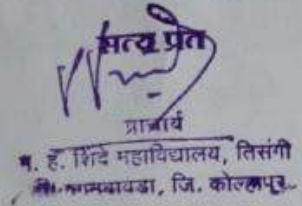 सत्य प्रत
प्राचार्य
म. ह. शिंदे महाविद्यालय, तिसंगी
जि. कोल्हापूर.